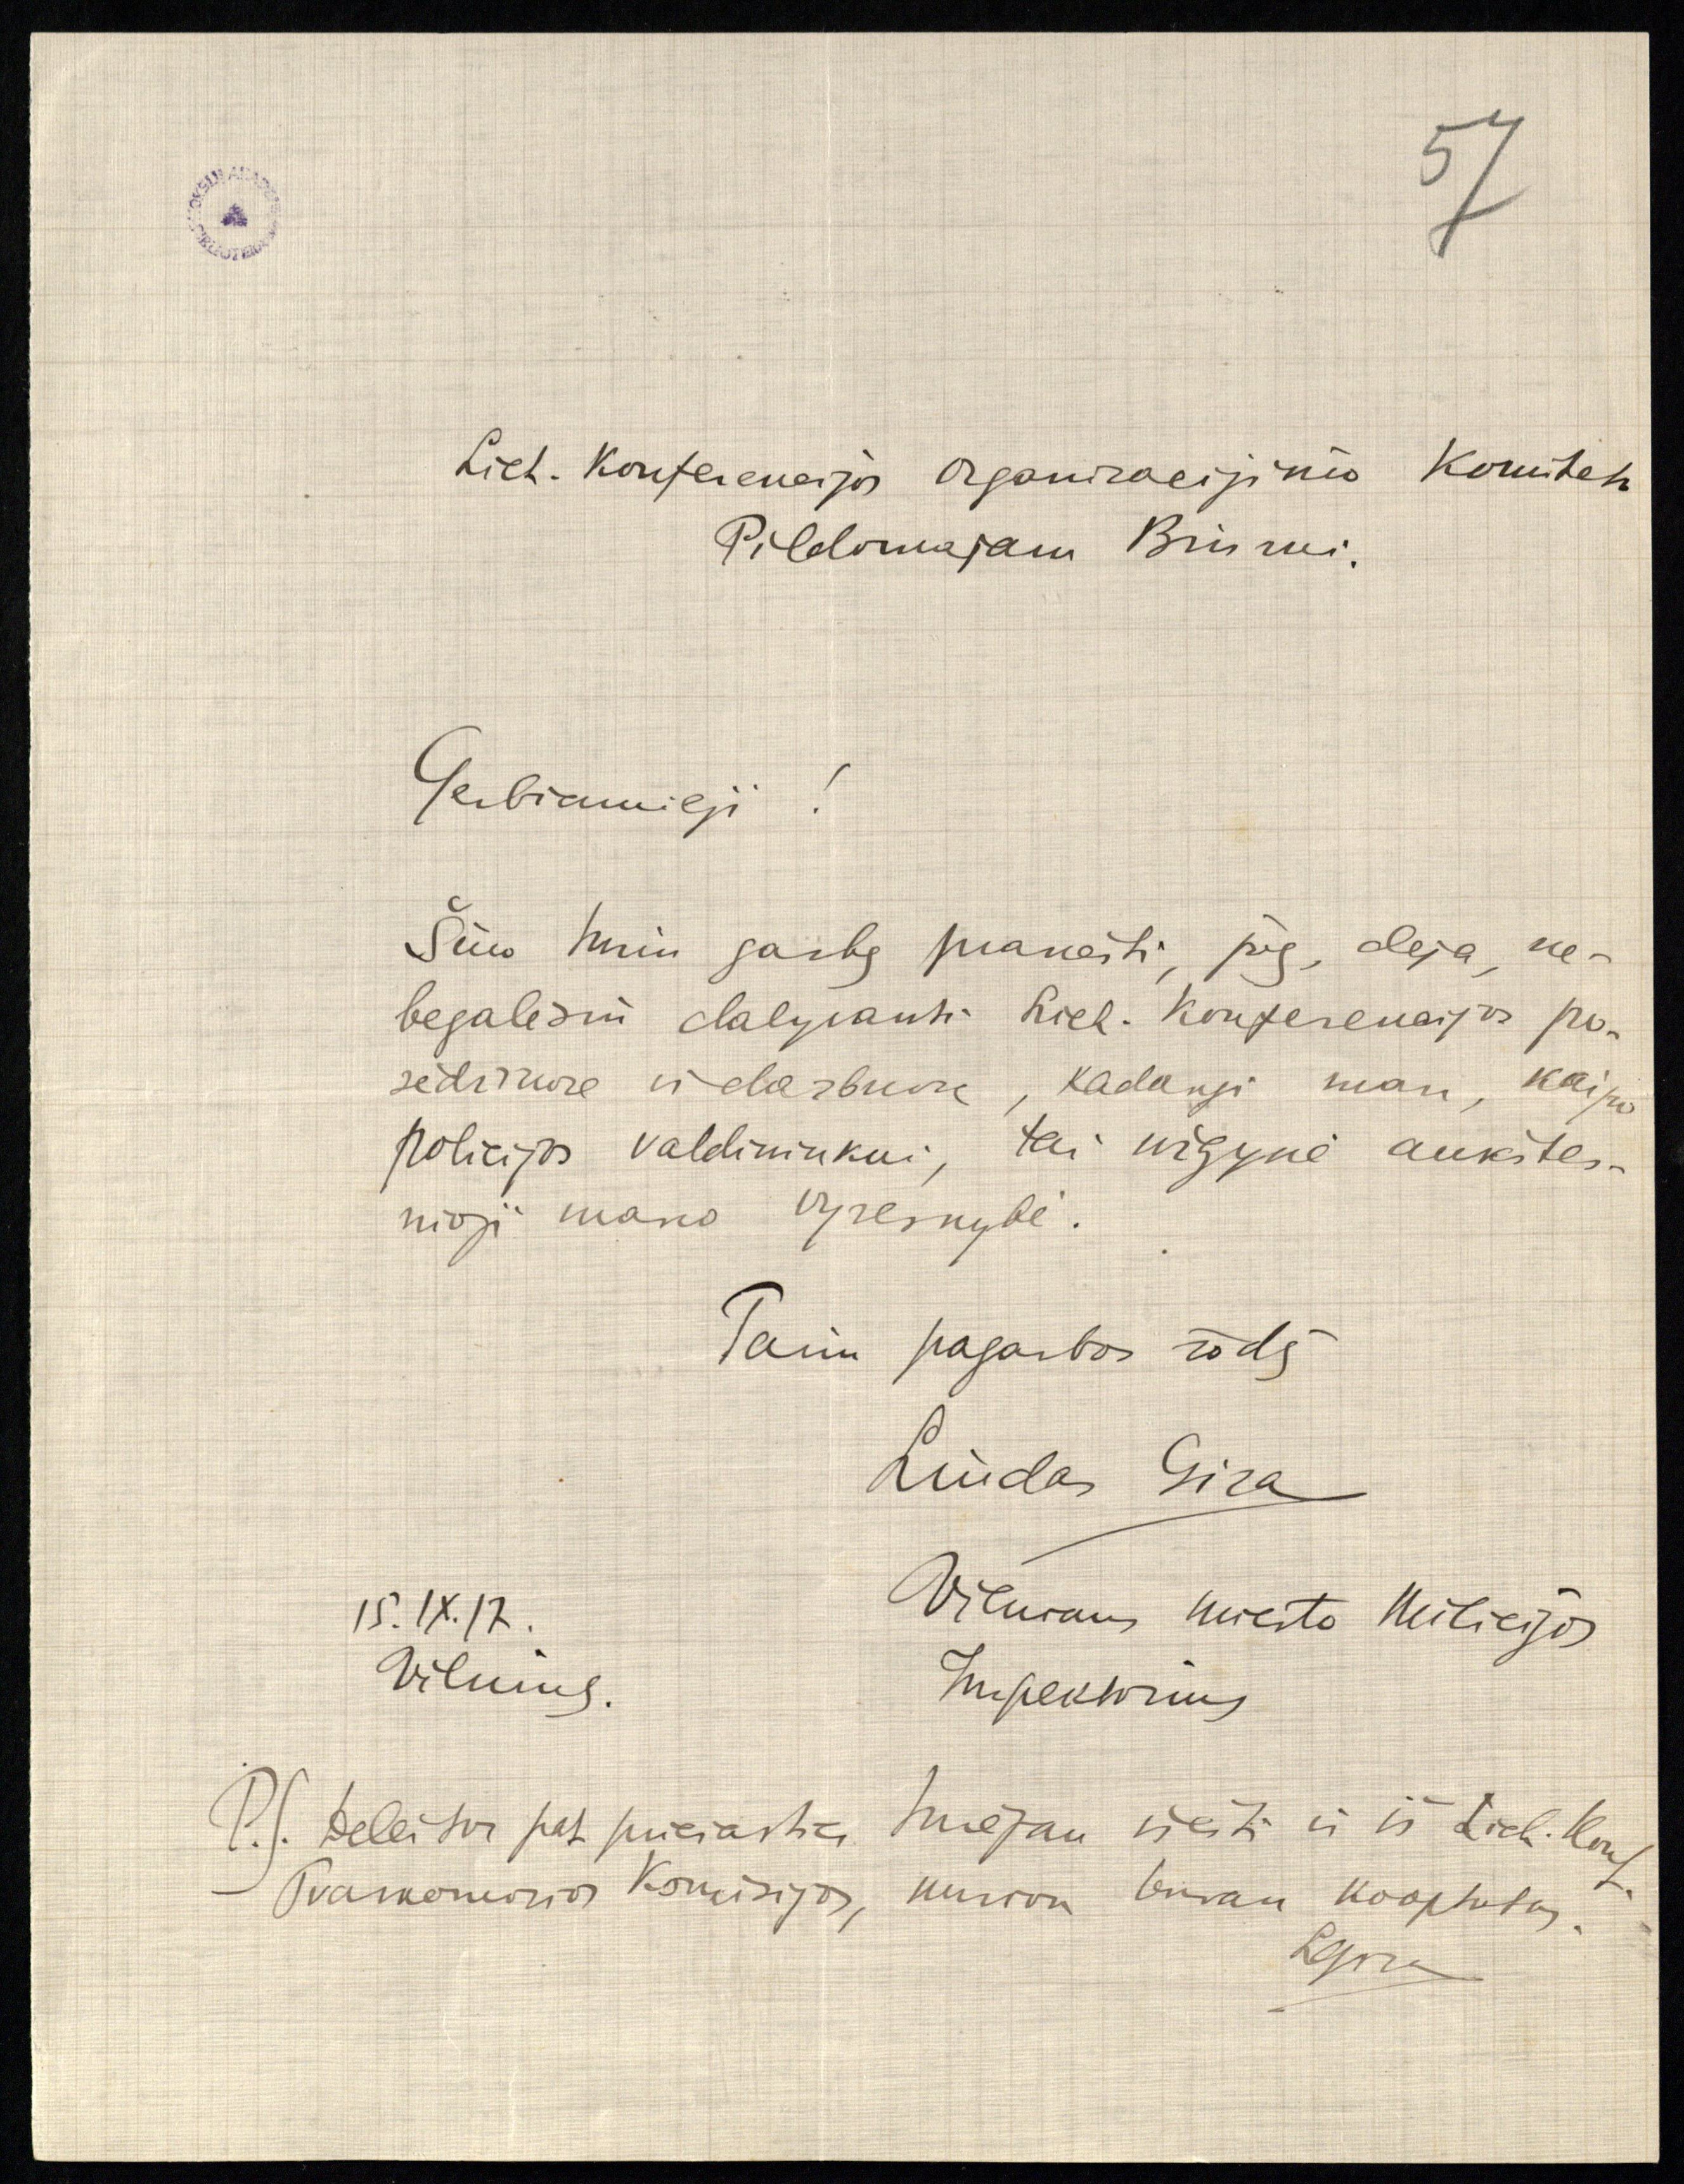 57
Liet. Konferencijos Organizacijinio Komiteto
Pildomajam Biurui.
Gerbiamieji!
Šiuo turiu garbę pranešti, jog, deja, ne-
begalėsiu dalyvauti Liet. Konferencijos po-
sėdžiuose ir darbuose, kadangi man, kaipo
policijos valdininkui, tai užgynė aukštes-
nioji mano vyresnybė.
Tariu pagarbos žodį
Liudas Gira
15.IX.17.
Vilnius.
Vilniaus miesto Milicijos
Inspektorius
P.S. Delei tos pat priežasties turėjau išeiti ir iš Liet. Konf.
Tvarkomosios Komisijos, kurion buvau kooptuotas.
LGira